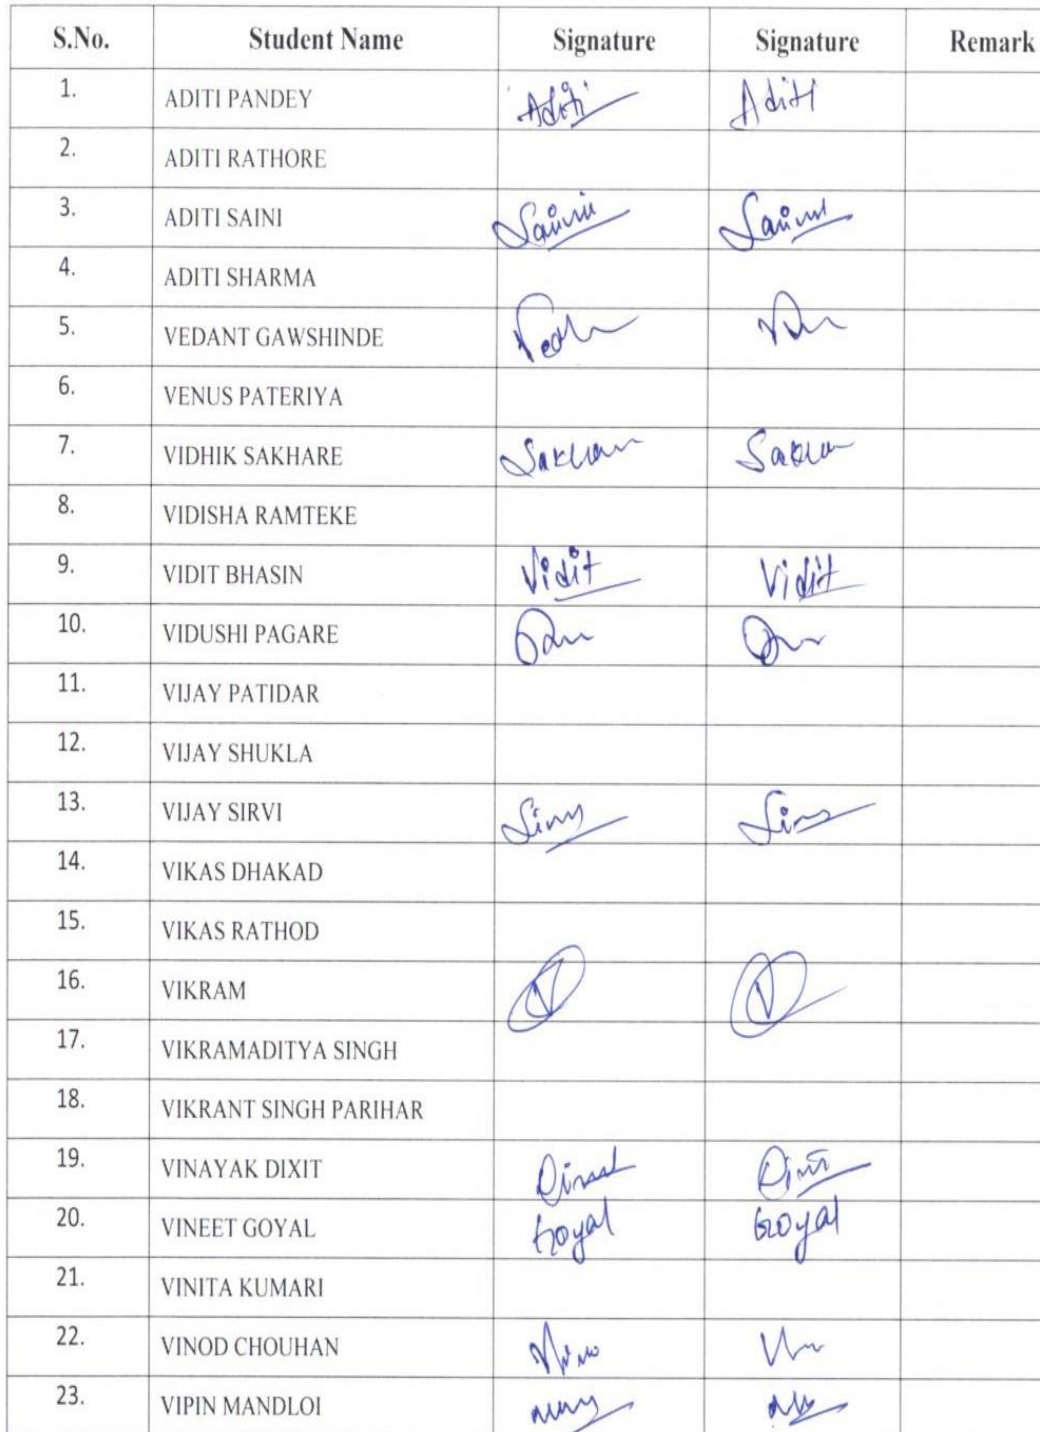 S.No. Student Name Signature Signature Remark
1. ADITI PANDEY Aditi Aditi
2. ADITI RATHORE
3. ADITI SAINI
4. ADITI SHARMA
5. VEDANT GAWSHINDE
6. VENUS PATERIYA
7. VIDHIK SAKHARE
8. VIDISHA RAMTEKE
9. VIDIT BHASIN Vidit Vidit
10. VIDUSHI PAGARE
11. VIJAY PATIDAR
12. VIJAY SHUKLA
13. VIJAY SIRVI
14. VIKAS DHAKAD
15. VIKAS RATHOD
16. VIKRAM
17. VIKRAMADITYA SINGH
18. VIKRANT SINGH PARIHAR
19. VINAYAK DIXIT
20. VINEET GOYAL Goyal Goyal
21. VINITA KUMARI
22. VINOD CHOUHAN
23. VIPIN MANDLOI